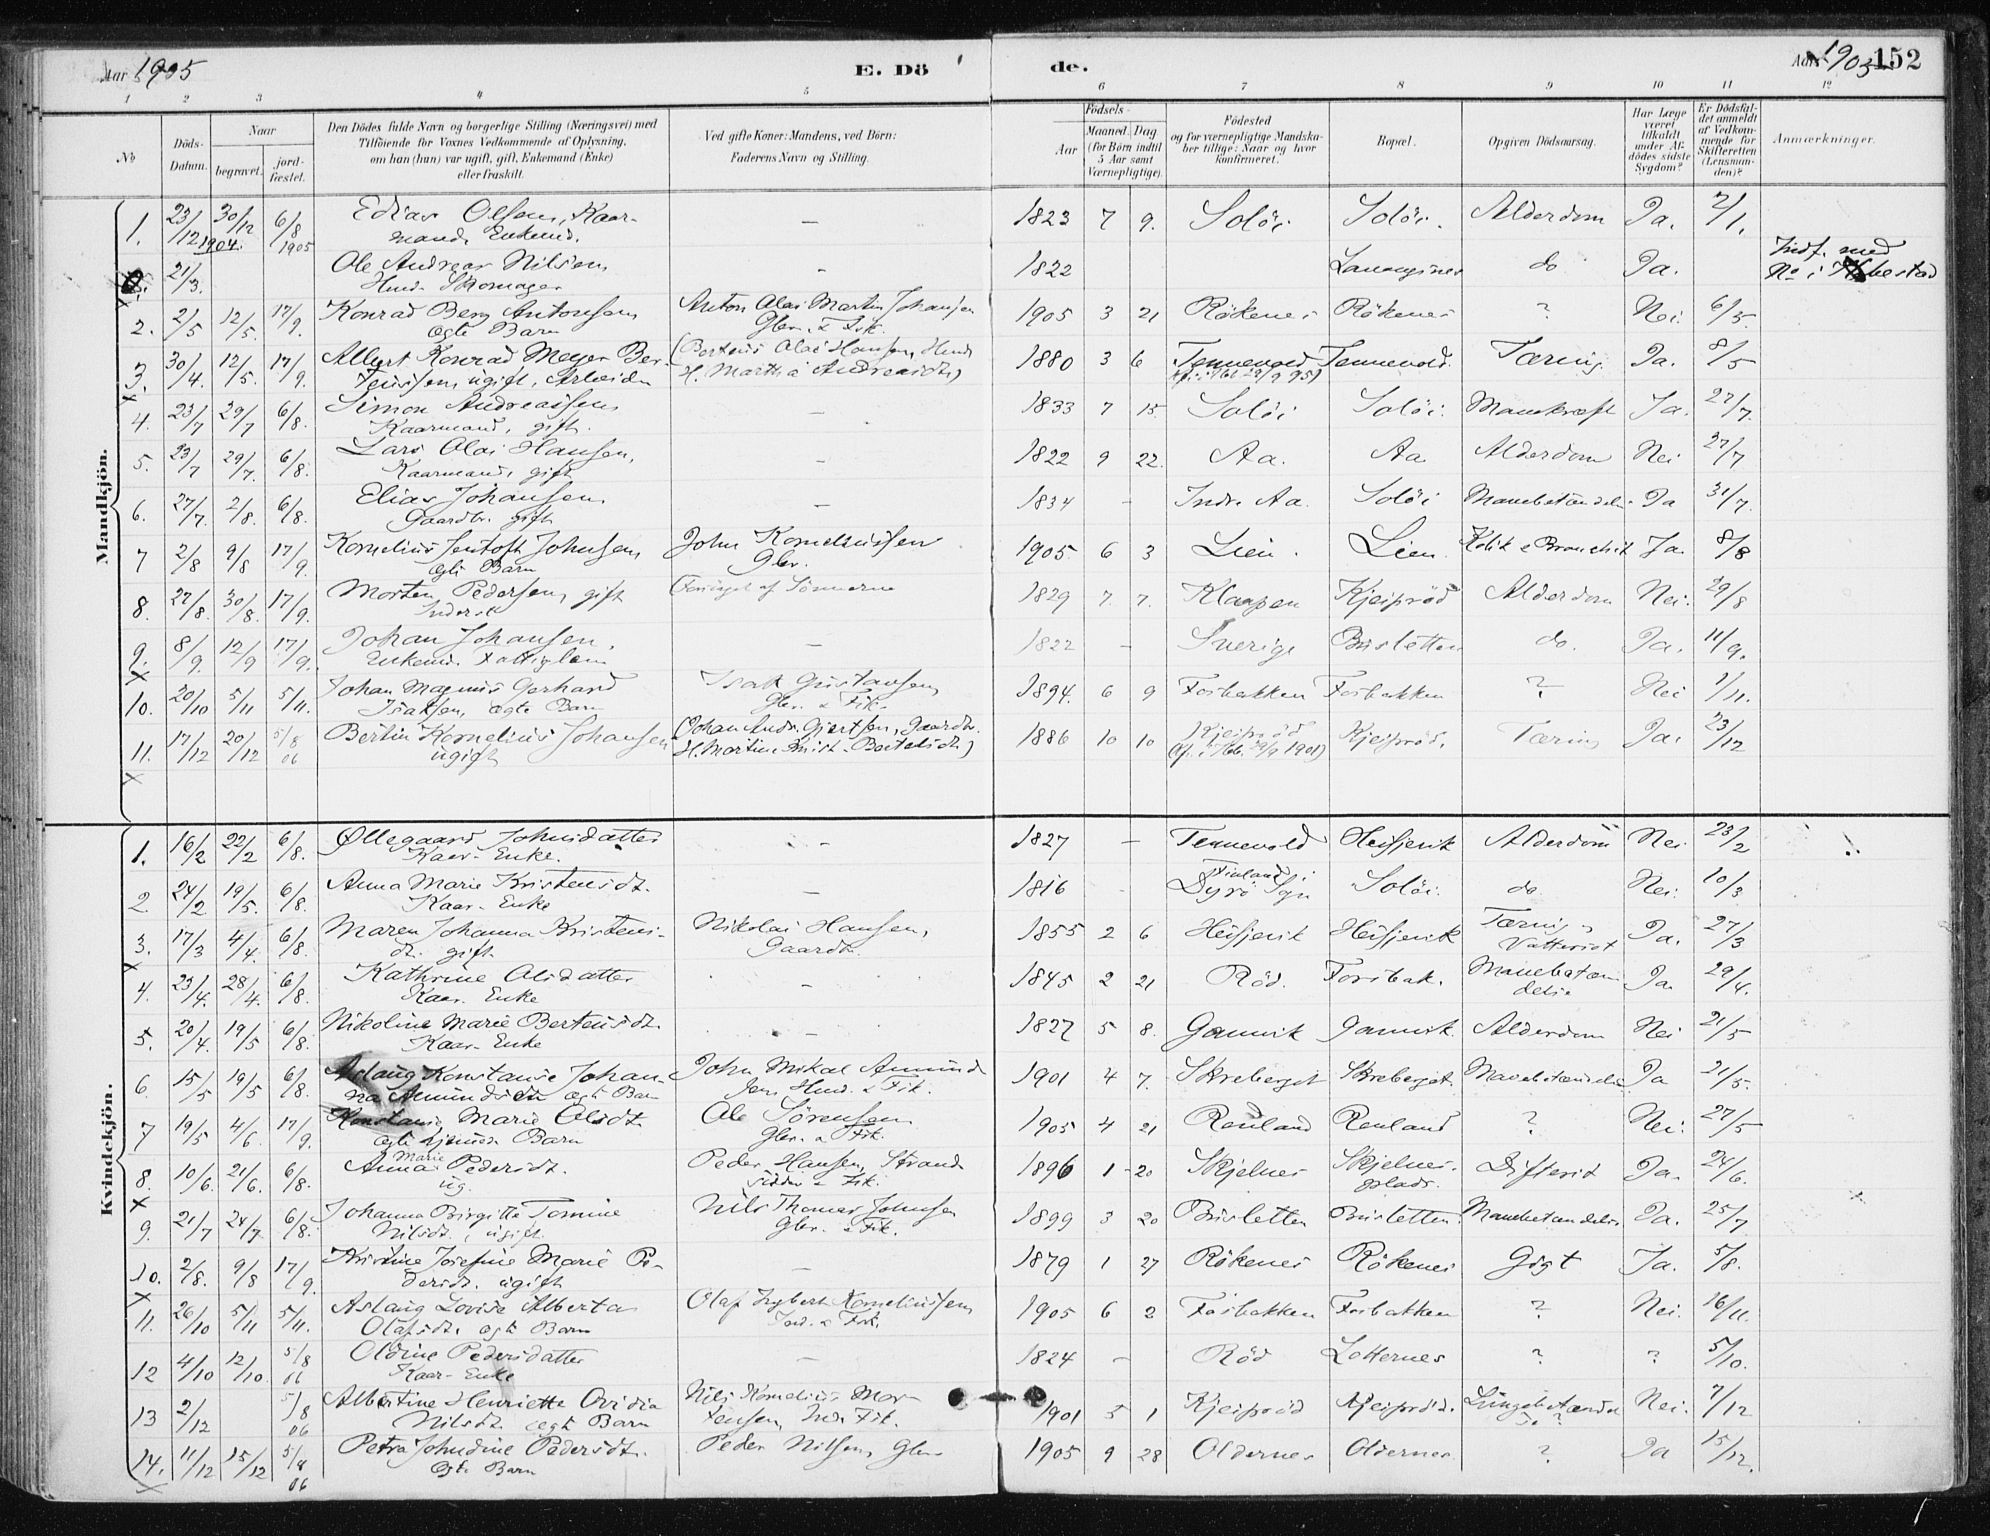 Aar 1905
E. Dö
de.
Aar 1905 152
1 2 3 4 5 6 7 8 9 10 11 12
No
Döds-
Datum.
Naar
begravet.
jord-
fæstet.
Den Dödes fulde Navn og borgerlige Stilling (Næringsvei) med
Tilföiende for Voxnes Vedkommende af Oplysning,
om han (hun) var ugift, gift, Enkemand (Enke)
eller fraskilt.
Ved gifte Koner: Mandens, ved Börn:
Faderens Navn og Stilling.
Födsels-
Aar
Maaned. Dag
(for Børn indtil
5 Aar samt
Værnepligtige).
Födested
og for værnepligtige Mandska-
ber tillige: Naar og hvor
konfirmeret.
Bopæl.
Opgiven Dödsaarsag.
Har Læge
været
tilkaldt
under Af-
dødes sidste
Sygdom?
Er Dödsfal-
det anmeldt
af Vedkom-
mende for
Skifteretten
(Lensman-
den)?
Anmærkninger.
Mandkjön.
1. 23/12 1904. 30/12 6/8 1905 Edias Olsen, Kaar-
mand, Enkemd. — 1823 7 9. Solöi. Solöi. Alderdom Ja. 2/1.
21/3. Ole Andreas Nilsen,
Husmd. Skomager - 1822 do Ja. Indf. med
No i
2. 2/5 12/5. 17/9. Konrad Berg Antonsen,
ægte Barn Anton Olai Martin Johansen
Gbr. & Fisk. 1905 3 21 Rökenes Rökenes ? Nei. 6/5.
3. 30/4. 12/5. 17/9. Albert Konrad Meyer Ber-
teussen, ugift, Arbeider (Berteus Olai Hansen, Husmd
H. Martha Andreasdt.) 1880 3 6 Tennevold Tennevold. Tæring Ja. 8/5
4. 23/7 29/7 6/8. Simon Andreassen,
Kaarmand, gift. — 1833 7 15 Solöi Solöi. Mavekræft Ja. 27/7.
5. 23/7 29/7. 6/8. Lars Olai Hansen,
Kaarmand, gift — 1822 9 22. Aa. Aa Alderdom Nei 27/7
6. 27/7. 2/8. 6/8. Elias Johansen,
Gaardbr. gift — 1834 - Indre Aa. Solöi Mavebetændelse Ja 31/7.
7 2/8 9/8 17/9. Kornelius Jentoft Johnsen,
ægte Barn John Korneliussen
Gbr. 1905. 6 3 Lien. Lien. Kolik & Bronchit Ja. 8/8
8. 27/8. 30/8. 17/9. Morten Pedersen, gift
Inderst Forsörget af Sönnerne 1829 7. 7. Klaapen Kjeipröd Alderdom Nei. 29/8
9. 8/9. 12/9 17/9. Johan Johansen,
Enkemd. Fattiglem — 1822 - Sverige Brusletten do. Ja. 11/9.
10. 20/10 5/11 5/11. Johan Magnus Gerhard
Isaksen, ægte Barn Isak Gustavsen,
Gbr. & Fisk. 1894. 6 9 Forbakken Forbakken ? Nei 1/11.
11. 17/12 20/12 5/8 06 Bertin Kornelius Johansen
ugift (Johan Andr. Gjertsen, Gaardbr.
H. Martine Krist. Bertelsdt.) 1886 10 10 Kjeipröd Kjeipröd. Tæring Ja. 23/12
Kvindekjön.
1. 16/2 22/2 6/8. Øllegaard Johnsdatter
Kaar-Enke. — 1827 — Tennevold Heisjevik Alderdom Nei 23/2
2. 24/2 19/5. 6/8. Anna Marie Kristensdt.
Kaar-Enke - 1816 - Finland i
Dyrö Sogn Solöi. do. Nei. 10/3
3. 17/3 4/4. 6/8. Maren Johanna Kristens-
dt. gift. Nikolai Hansen,
Gaardbr. 1855 2 6 Heisjevik Heisjevik Tæring &
Vattersot Ja. 27/3
4. 23/4. 28/4. 6/8. Kathrine Olsdatter
Kaar. Enke — 1845 2 21 Röd. Forsbak. Mavebetæn-
delse Ja. 29/4.
5. 20/4. 19/5 6/8. Nikoline Marie Berteusdt.
Kaar-Enke — 1827 5 8. Gamvik Gamvik. Alderdom Nei 21/5
6. 15/5 19/5 6/8. Aslaug Konstanse Johan-
na Amundsdtr ægte Barn John Mikal Amund-
sen Husmd. & Fisk. 1901 4 7. Skreberget Skreberget. Mavebetændelse Ja 21/5.
7 19/5 4/6. 17/9. Konstanse Marie Olsdt.
ægte hjemmed. Barn Ole Sörensen
Gbr. & Fisk. 1905 4 21 Renland Renland ? Nei. 27/5
8. 10/6. 21/6. 6/8. Anna Marie Pedersdt.
ug. Peder Hansen, Strand-
sidder & Fisk. 1896 1 20 Skjelnes Skjelnes.
plads. Difterit Ja. 24/6.
9. 21/7 24/7. 6/8. Johanna Birgitte Tomine
Nilsdt., ugift. Nils Thomas Johnsen
Gbr. & Fisk. 1899 3 20 Brusletten Brusletten. Mavebetændelse Ja. 25/7
10. 2/8. 9/8 17/9. Kristine Josefine Marie Pe-
dersdt. ugift — 1879 1 27 Rökenes Rökenes Gigt Ja. 5/8.
11. 26/10 5/11 5/11. Aslaug Lovise Alberta
Olafsdt. ægte Barn Olaf Ingbert Korneliussen
Ind. & Fisk. 1905 6 2 Forbakken Forbakken ? Nei. 16/11.
12 4/10 12/10. 5/8 06 Oldine Pedersdatter
Kaar-Enke — 1824 - Röd Lotternes ? ? 5/10.
13 2/12 5/8 06 Albertine Henriette Ovidia
Nilsdt. ægte Barn Nils Kornelius Mor-
tensen, Ind. Fisk. 1901 5 1 Kjeipröd Kjeipröd. Lungebetændel-
se? Nei. 7/12
14. 11/12 15/12 5/8 06 Petra Johndine Pedersdt.
ægte Barn Peder Nilsen, Gbr 1905 9 28 Oldernes Oldernes ? Ja 15/12.